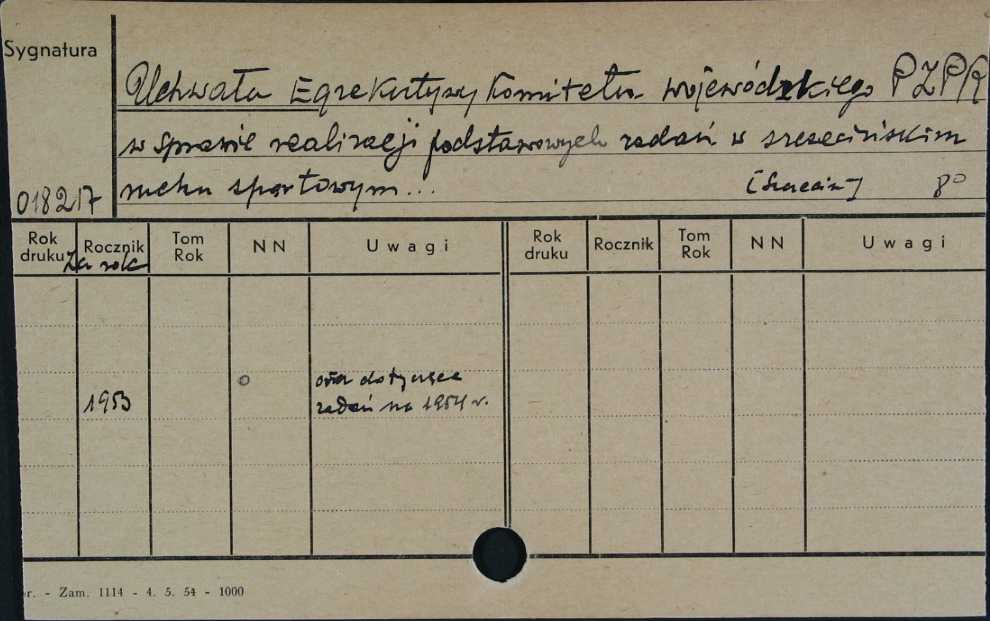 Sygnatura
Uchwała Egzekutywy Komitetu Wojewódzkiego PZPR
w sprawie realizacji podstawowych zadań w szczecińskim
ruchu sportowym... [Szczecin] 8°
018217
Rok druku Rocznik Tom Rok NN Uwagi Rok druku Rocznik Tom Rok NN Uwagi
Za rok
oraz dotyczące
1953 zadań na 1954 r.
r. - Zam. 1114 - 4. 5. 54 - 1000